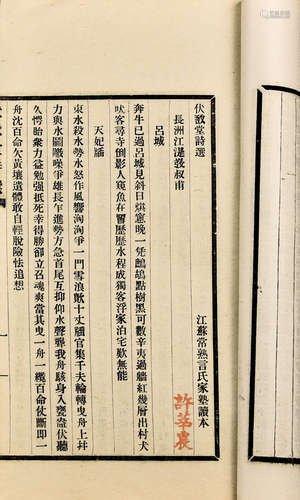 伏敔堂詩選
江蘇常熟言氏家塾讀本
長洲江湜弢叔甫
許菊農
呂城
奔牛已過呂城見斜日烘窻晚一凭鸛鴣點樹黑可數辛夷過牆紅幾層出村犬
吠客尋寺倒影人窺魚在罾歷歷水程成獨客浮家泊宅歎無能
天妃牐
束水殺水勢水怒作風響洶洶爭一門雪浪歕十丈牐官集千夫輪轉曳舟上舟
力與水鬬噉噪爭雄長乍進勢方急首尾互抑仰水聲聾我舟駭身入甕盎伏聽
久愕眙衆力益勉强抵死幸得勝卻立召魂爽當其曳一舟一纜百命仗斷即一
舟沈百命欠黃壤遺體敢自輕脫險怯追想